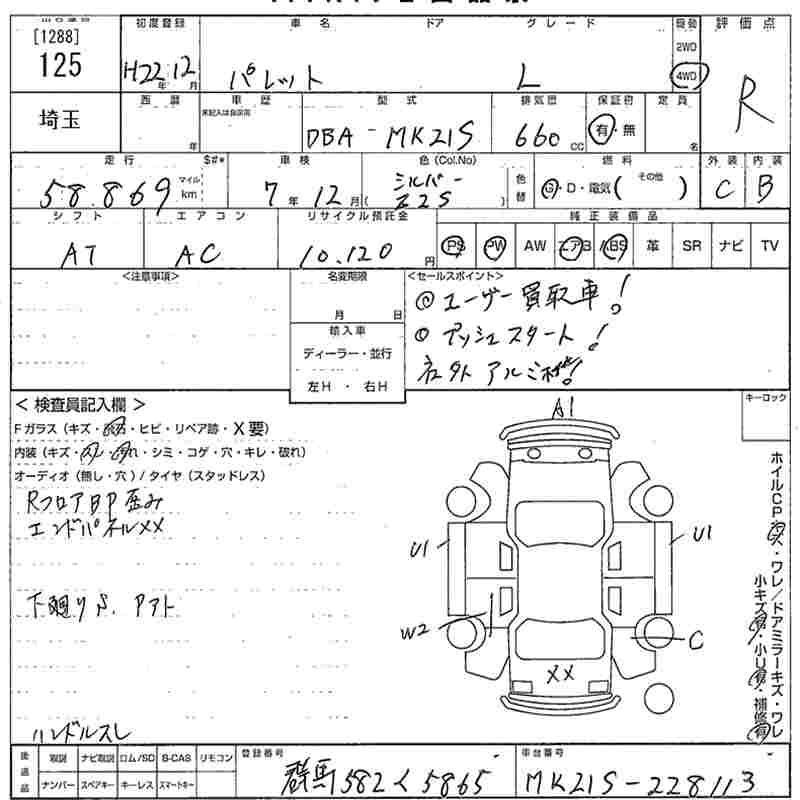 [1288]
125
初度登録
H22年12月
車名 ドア グレード
パレット L
駆動
2WD
4WD
評価点
R
埼玉
西暦
年
車歴
未記入は自家用
型式
DBA-MK21S
排気団
660cc
保証書
有・無
定員
名
走行 $#*
58.869 マイル km
車検
7年12月
色(Col.No)
シルバー
Z2S
色替
燃料
G・D・電気( その他 )
外装
C
内装
B
シフト
AT
エアコン
AC
リサイクル預託金
10.120円
純正装備品
PS PW AW エアB ABS 革 SR ナビ TV
<注意事項>
名変期限
月 日
輸入車
ディーラー・並行
左H・右H
<セールスポイント>
◎ユーザー買取車!
◎プッシュスタート!
社外アルミ付!
<検査員記入欄>
Fガラス(キズ・飛石・ヒビ・リペア跡・X要)
内装(キズ・スレ・汚れ・シミ・コゲ・穴・キレ・破れ)
オーディオ(無し・穴)/タイヤ(スタッドレス)
RフロアBP歪み
エンドパネルXX
下廻りS、Pアト
ハンドルスレ
キーロック
A1
U1
U1
W2
C
XX
ホイルCP・キズ・ワレ/ドアミラーキズ・ワレ
小キズ有・小U有・補修有
後返品
取説 ナビ取説 ロム/SD B-CAS リモコン
ナンバー スペアキー キーレス スマートキー
登録番号
群馬582く5865
車台番号
MK21S-228113